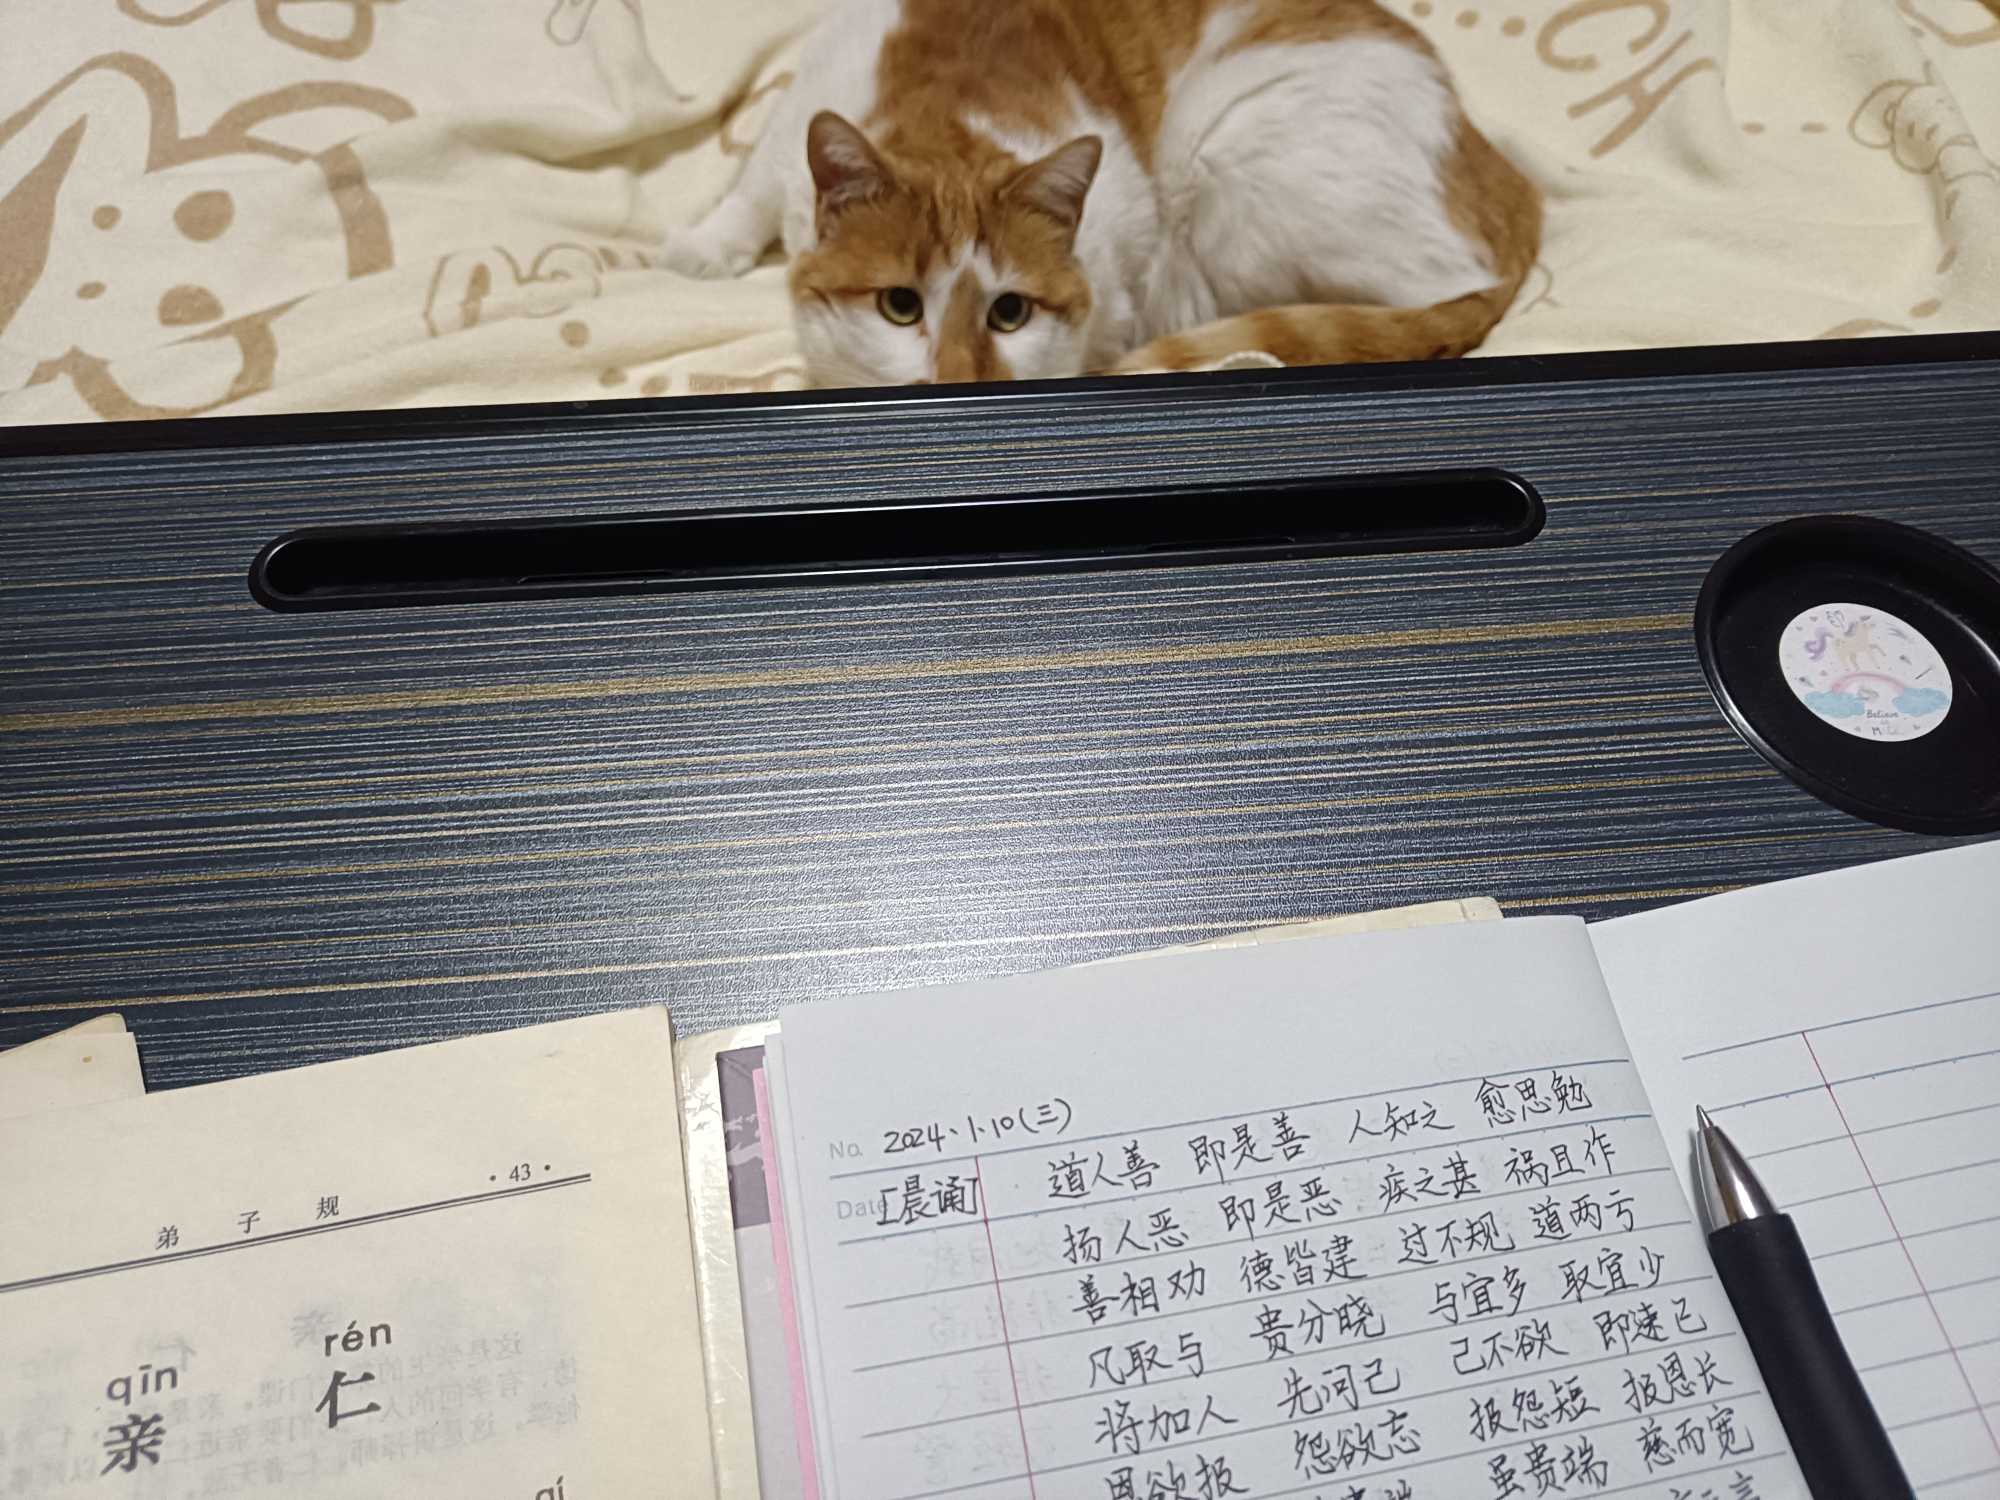 CH
Believe
· 43 ·
弟 子 规
qīn rén
亲 仁
No. 2024.1.10(三)
Date
[晨诵]
道人善 即是善 人知之 愈思勉
扬人恶 即是恶 疾之甚 祸且作
善相劝 德皆建 过不规 道两亏
凡取与 贵分晓 与宜多 取宜少
将加人 先问己 己不欲 即速已
恩欲报 怨欲忘 报怨短 报恩长
虽贵端 慈而宽